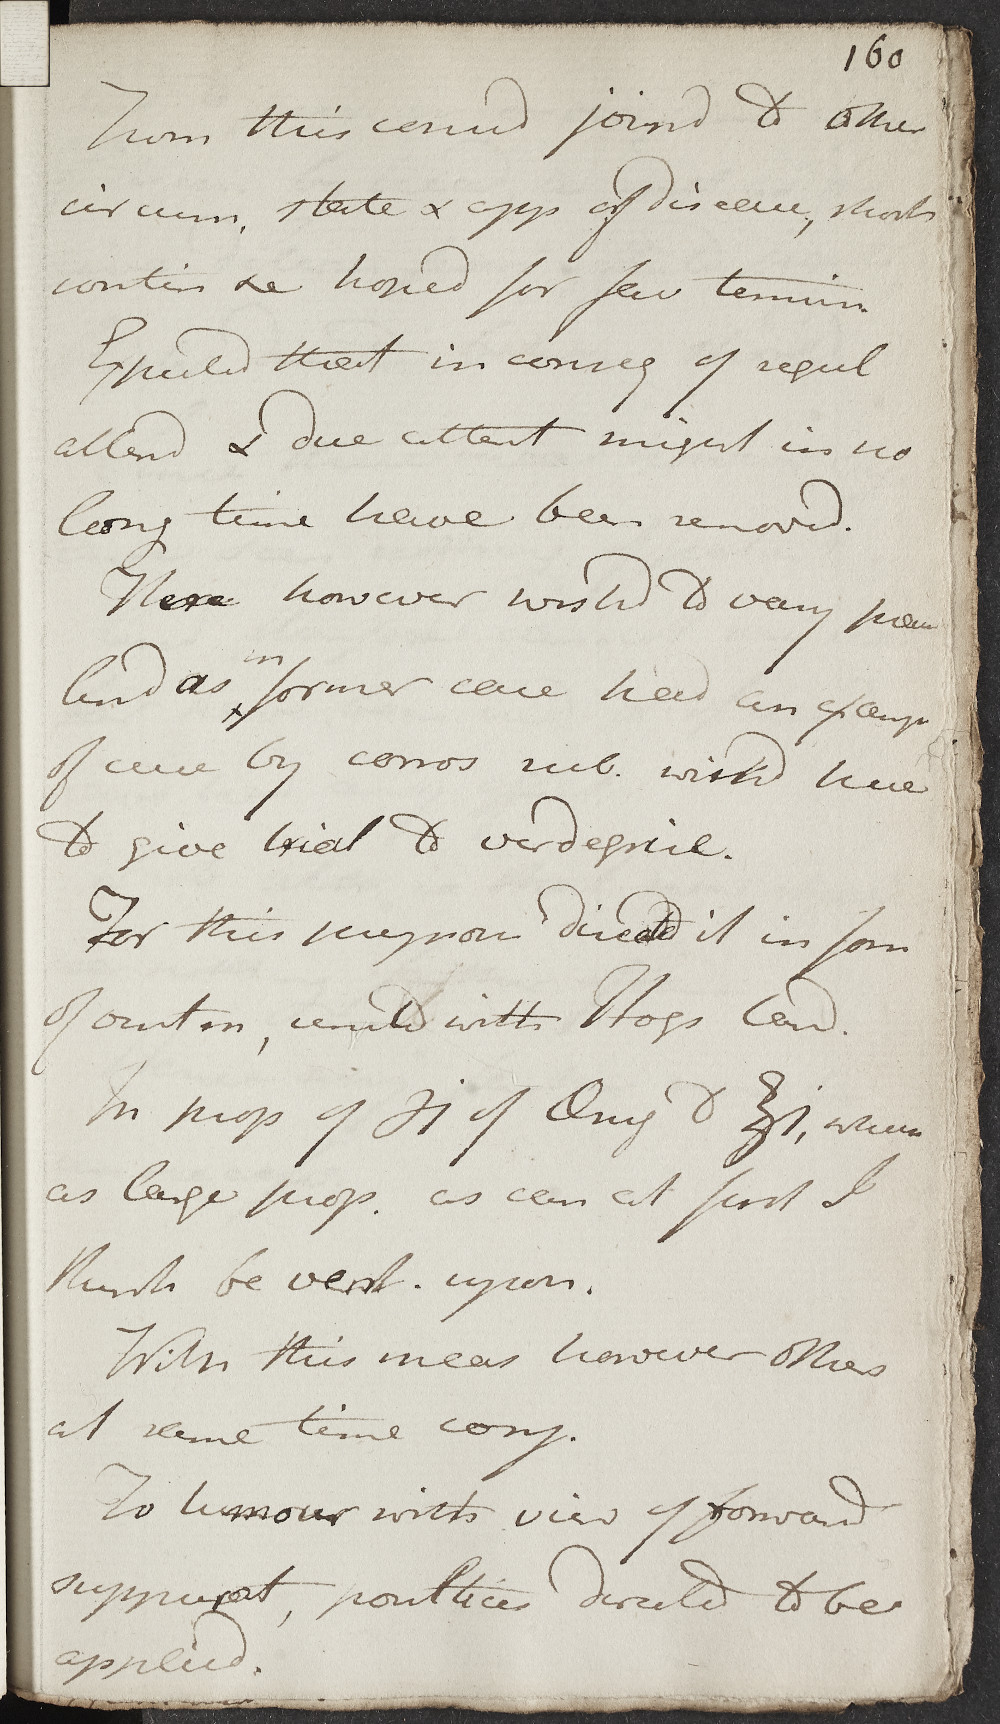 160
From this consid joind to other
circum, state & app of disease, short
contin &c hoped for fav termin
Expected that in conseq of regul
attend & due attent might in no
long time have been removd.
There however wishd to vary
and as in former case had an examp
of cure by corros sub. wishd here
to give trial to verdegrise.
For this purpose directed it in form
of ointm, united with Hogs lard.
In prop of ʒj of Aerug to ℥j, 
as large prop. as can at first I
think be vent. upon.
With this meas however others
at same time conj.
To tumour with view of forward
suppurat, poultices directed to be
applied.